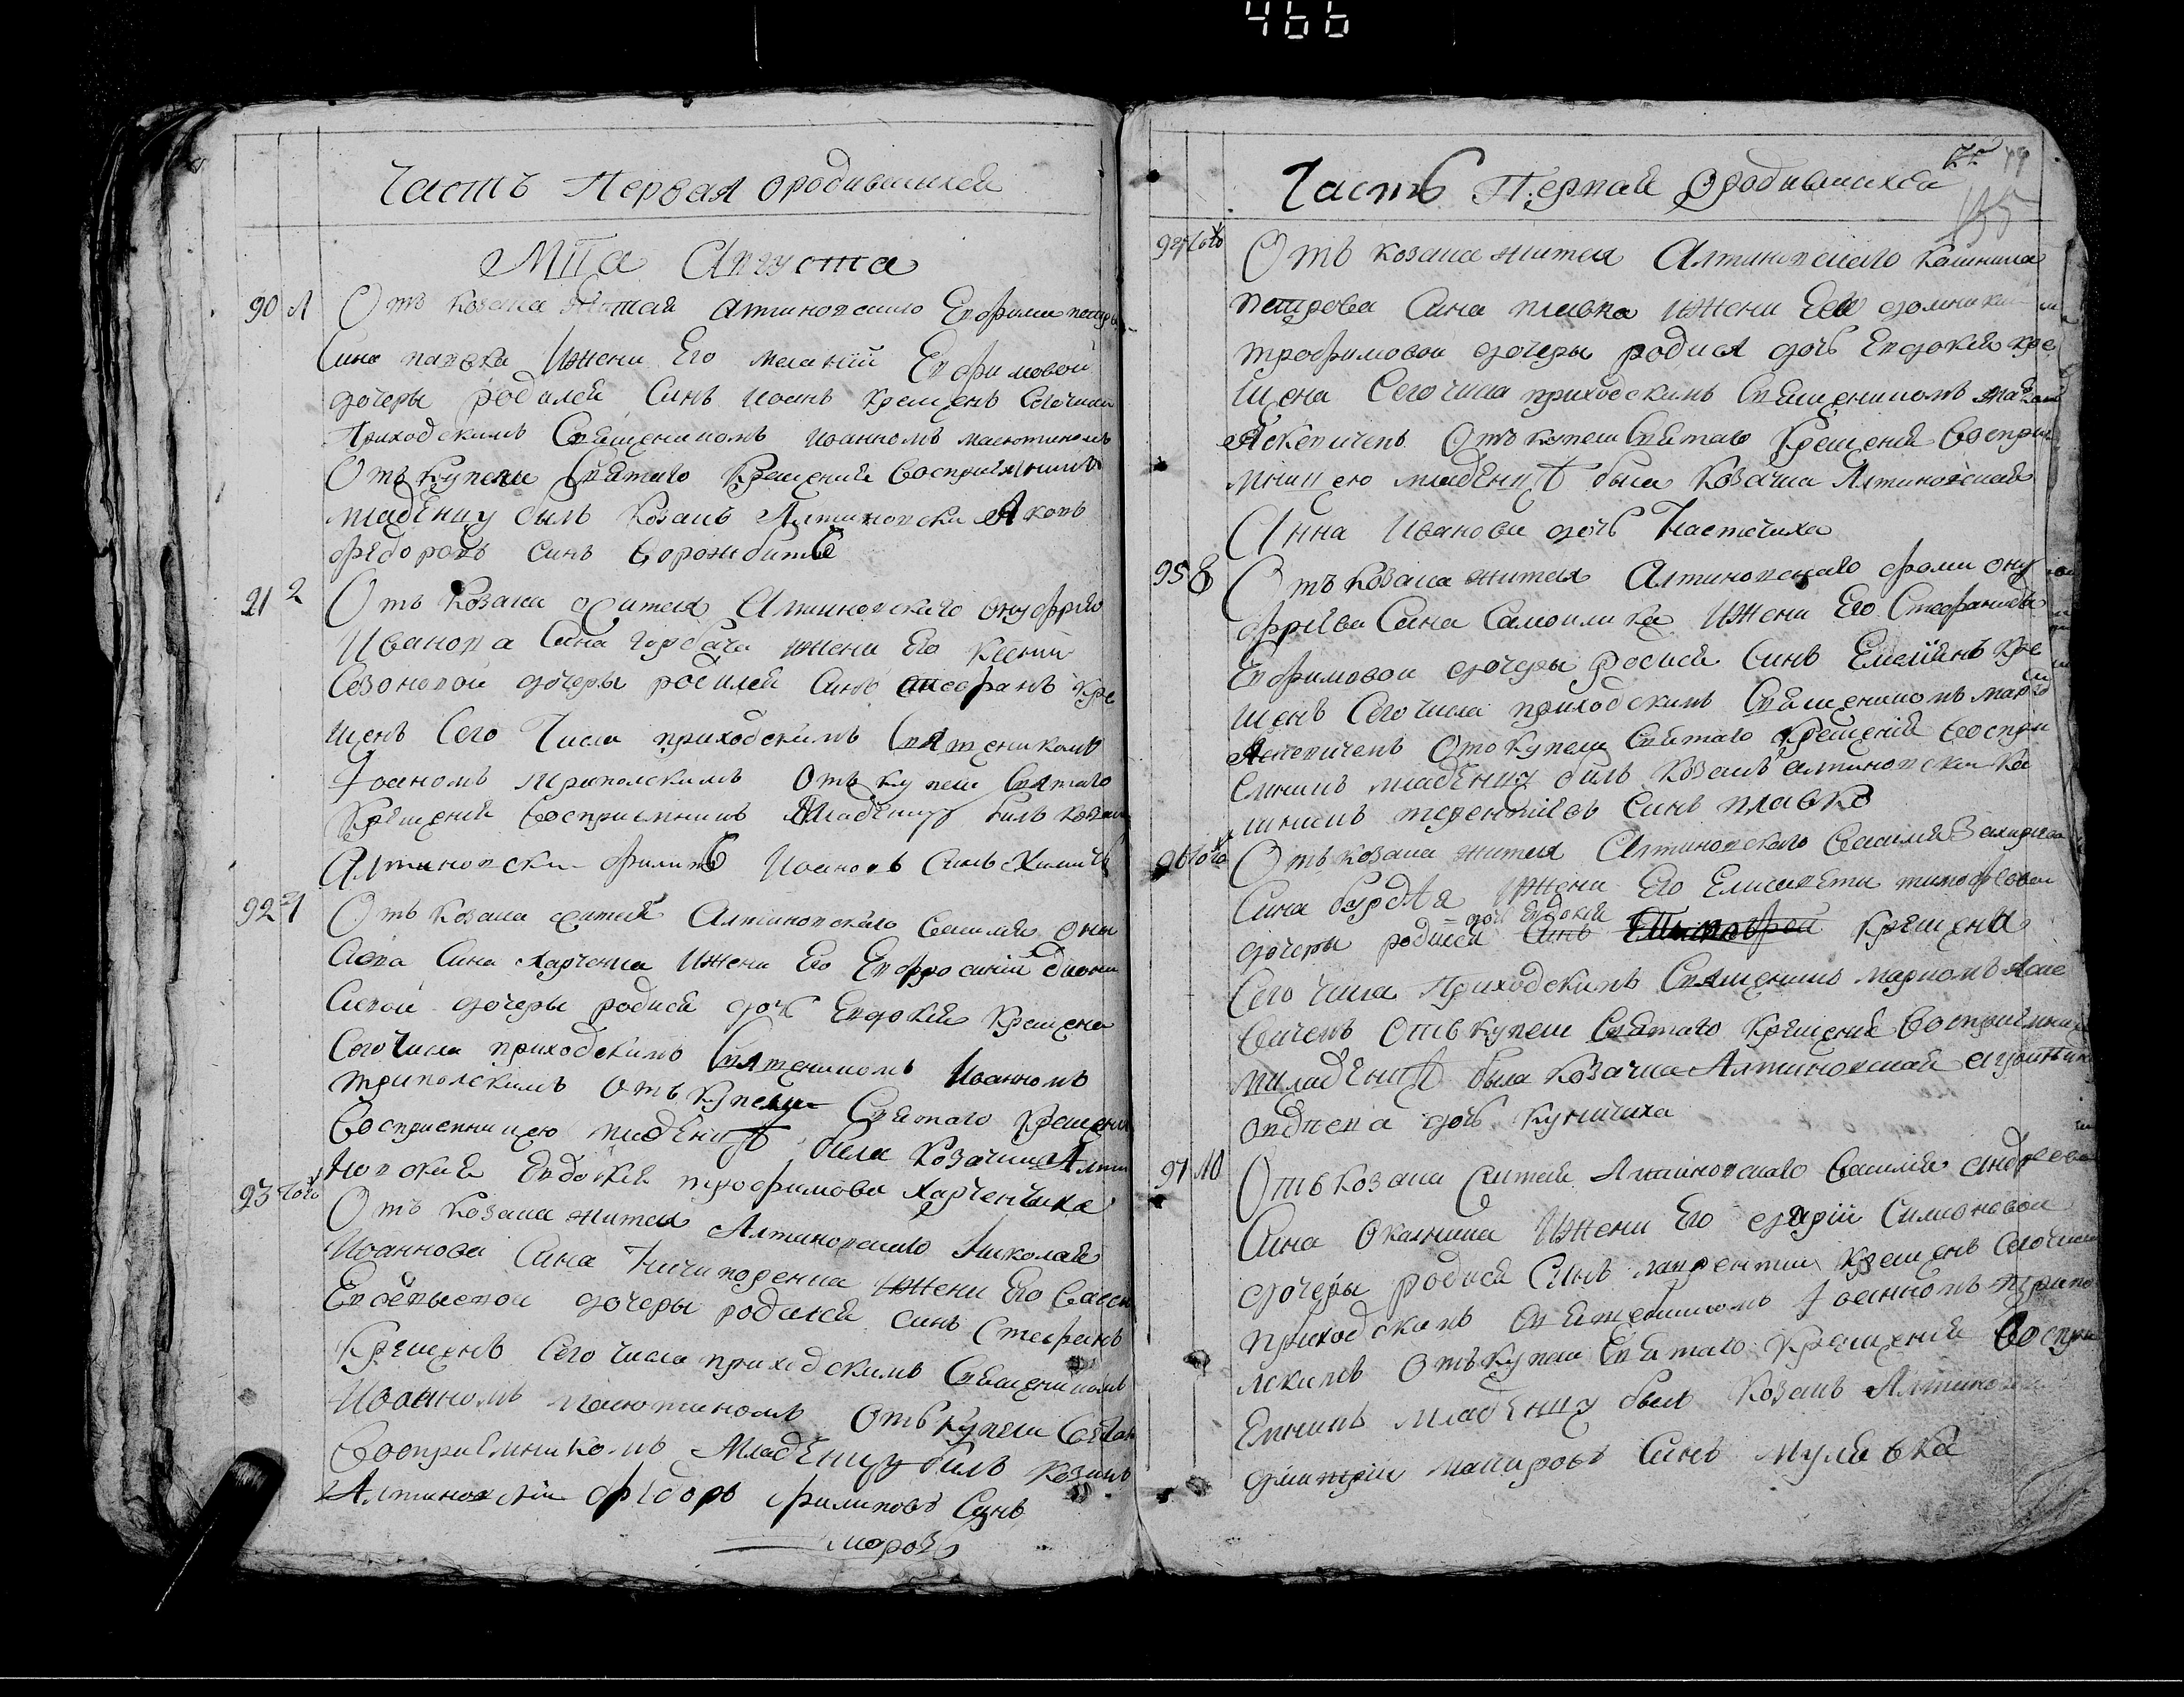 466
Часть Первая ородившихся
Мца Августа
90 1 Отъ козака жителя Алтиновского Евфима петро
Сина павока Ижени Его меланіи Евфимовой
дочеры родился Синъ Иоанъ крещенъ Сегочисла
Приходскимъ Священикомъ Иоанномъ масютиномъ
Отъ купели Святаго Крещения восприемникъ
младенцу былъ Козакъ Алтиновски Яковъ
федоровъ синъ Ворожбитъ
91 2 Отъ Козака жителя Алтиновского онуфрія
Иванова Сина горбача Ижени Его Ксении
Созоновой дочеры родился Синъ стефанъ кре
щенъ Сего Числа приходскимъ Священикомъ
Іоаномъ триполскимъ Отъ купели Святаго
Крещения восприемникъ Младенцу билъ козакъ
Алтиновски филипъ Иоановъ Синъ
92 4 Отъ Козака жителя Алтиновского василия
Сина харченка Ижени Его Евфросиніи
дочеры родися дочь Евдокия крещена
Сегочисла приходскимъ Святеникомъ Иоанномъ
триполскимъ Отъ купели Святаго крещения
восприемницею младенцѣ била козачка Алти
новская Евдокия трофимова харченчиха
93 того Отъ Козака жителя Алтиновского Николая
Иоаннова Сина Ничипоренка Ижени Его Васси
дочеры родился синъ Стефанъ
крещенъ Сего числа приходскимъ Священикомъ
Иоанномъ масютиномъ Отъ купели Святаго
восприемникомъ Младенцу билъ козакъ
Алтиновски федоръ филиповъ Синъ
морозъ
Часть Первая ородившихся
155
94 того Отъ козака жителя Алтиновского калиника
петрова Сина плавка Ижени Его домники
трофимовои дочеры родися дочь Евдокия кре
щена Сего числа приходскимъ Священикомъ
Яскевичемъ Отъ купели Святаго Крещения воспри
мницею младенцѣ была козачка Алтиновская
Анна Иванова дочь
95 8 Отъ козака жителя Алтиновского фоми ону
фріева Сина Самоилика Ижени Его Стефаниды
Евфимовои дочеры родися Синъ Емелиянъ кре
щенъ Сего числа приходскимъ Священикомъ марко
Яскевичемъ Отъ купели Святаго крещения воспри
емникъ младенцу билъ Козакъ алтиновски ка
линикъ терентіевъ Синъ плавко
96 того Отъ козака жителя Алтиновского василия Захариева
Сина бурдѣя Ижени Его Елисавети тимофеевои
дочь Евдокия
дочеры родися Синъ крещена
Сего числа Приходскимъ Священико маркомъ Яске
вичемъ Отъ купели Святаго крещения восприемни
младенцѣ была козачка Алтиновская
дочь куничиха
97 10 Отъ козака жителя Алтиновского василия андреева
Сина Ижени Его дарии Симоновои
дочеры родися Синъ лаврентии крещенъ Сегочисла
приходскимъ Священикомъ Іоанномъ трипо
лскимъ Отъ купели Святаго Крещения воспри
емникъ младенцу былъ козакъ Алтиновски
димитрии макаровъ Синъ Мулявка